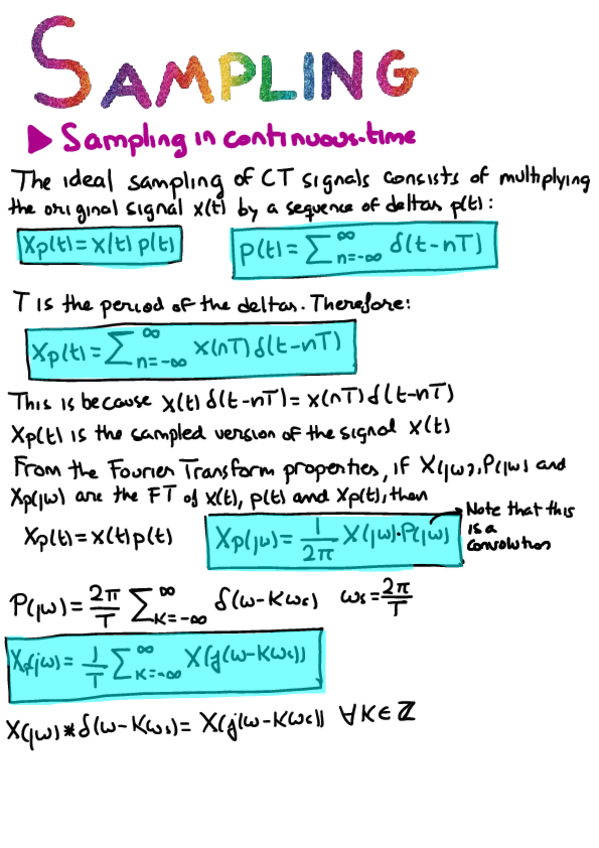 SAMPLING
▶ Sampling in continuous-time
The ideal sampling of CT signals consists of multiplying
the original signal x(t) by a sequence of deltas p(t):
Xp(t) = x(t) p(t)    p(t) = ∑_{n=-∞}^{∞} δ(t-nT)
T is the period of the deltas. Therefore:
Xp(t) = ∑_{n=-∞}^{∞} x(nT) δ(t-nT)
This is because x(t) δ(t-nT) = x(nT) δ(t-nT)
Xp(t) is the sampled version of the signal x(t)
From the Fourier Transform properties, if X(jω), P(jω) and
Xp(jω) are the FT of x(t), p(t) and xp(t), then
Xp(t) = x(t) p(t)    Xp(jω) = 1/2π X(jω)·P(jω)
Note that this
is a
convolution
P(jω) = 2π/T ∑_{k=-∞}^{∞} δ(ω-kωs)    ωs = 2π/T
Xp(jω) = 1/T ∑_{k=-∞}^{∞} X(j(ω-kωs))
X(jω) * δ(ω-kωs) = X(j(ω-kωs)) ∀k∈ℤ